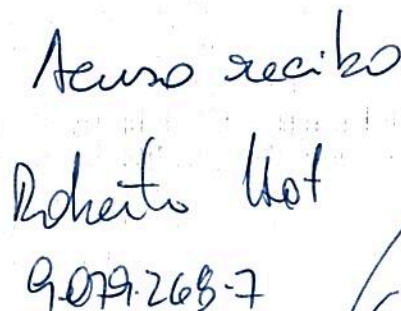 Acuso recibo
Roberto Hot
9.079.268-7